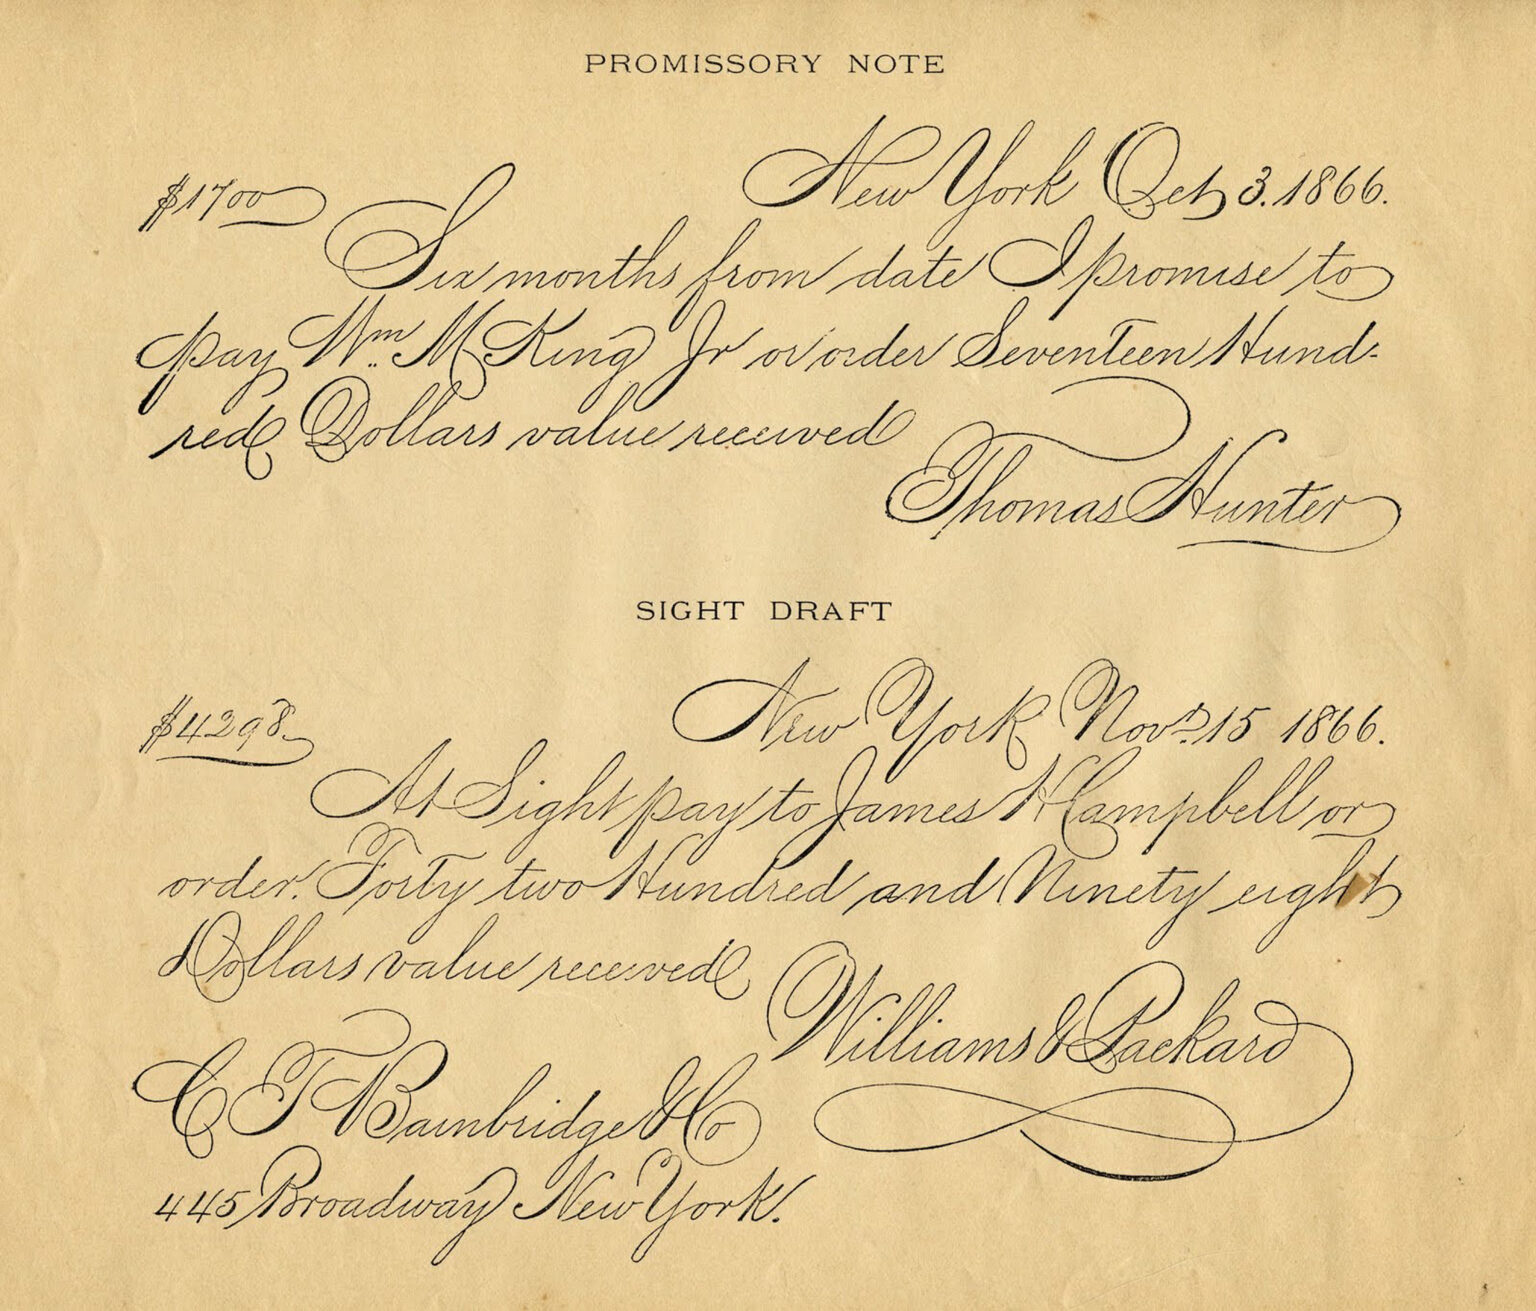 PROMISSORY NOTE
New York Oct 3. 1866.
$1700
Six months from date I promise to
pay Wm. McKing Jr or order Seventeen Hund-
red Dollars value received
Thomas Hunter
SIGHT DRAFT
New York Novr. 15 1866.
$4298.
At Sight pay to James H Campbell or
order. Forty two Hundred and Ninety eight
Dollars value received
Williams & Packard
C T Bainbridge & Co
445 Broadway New York.